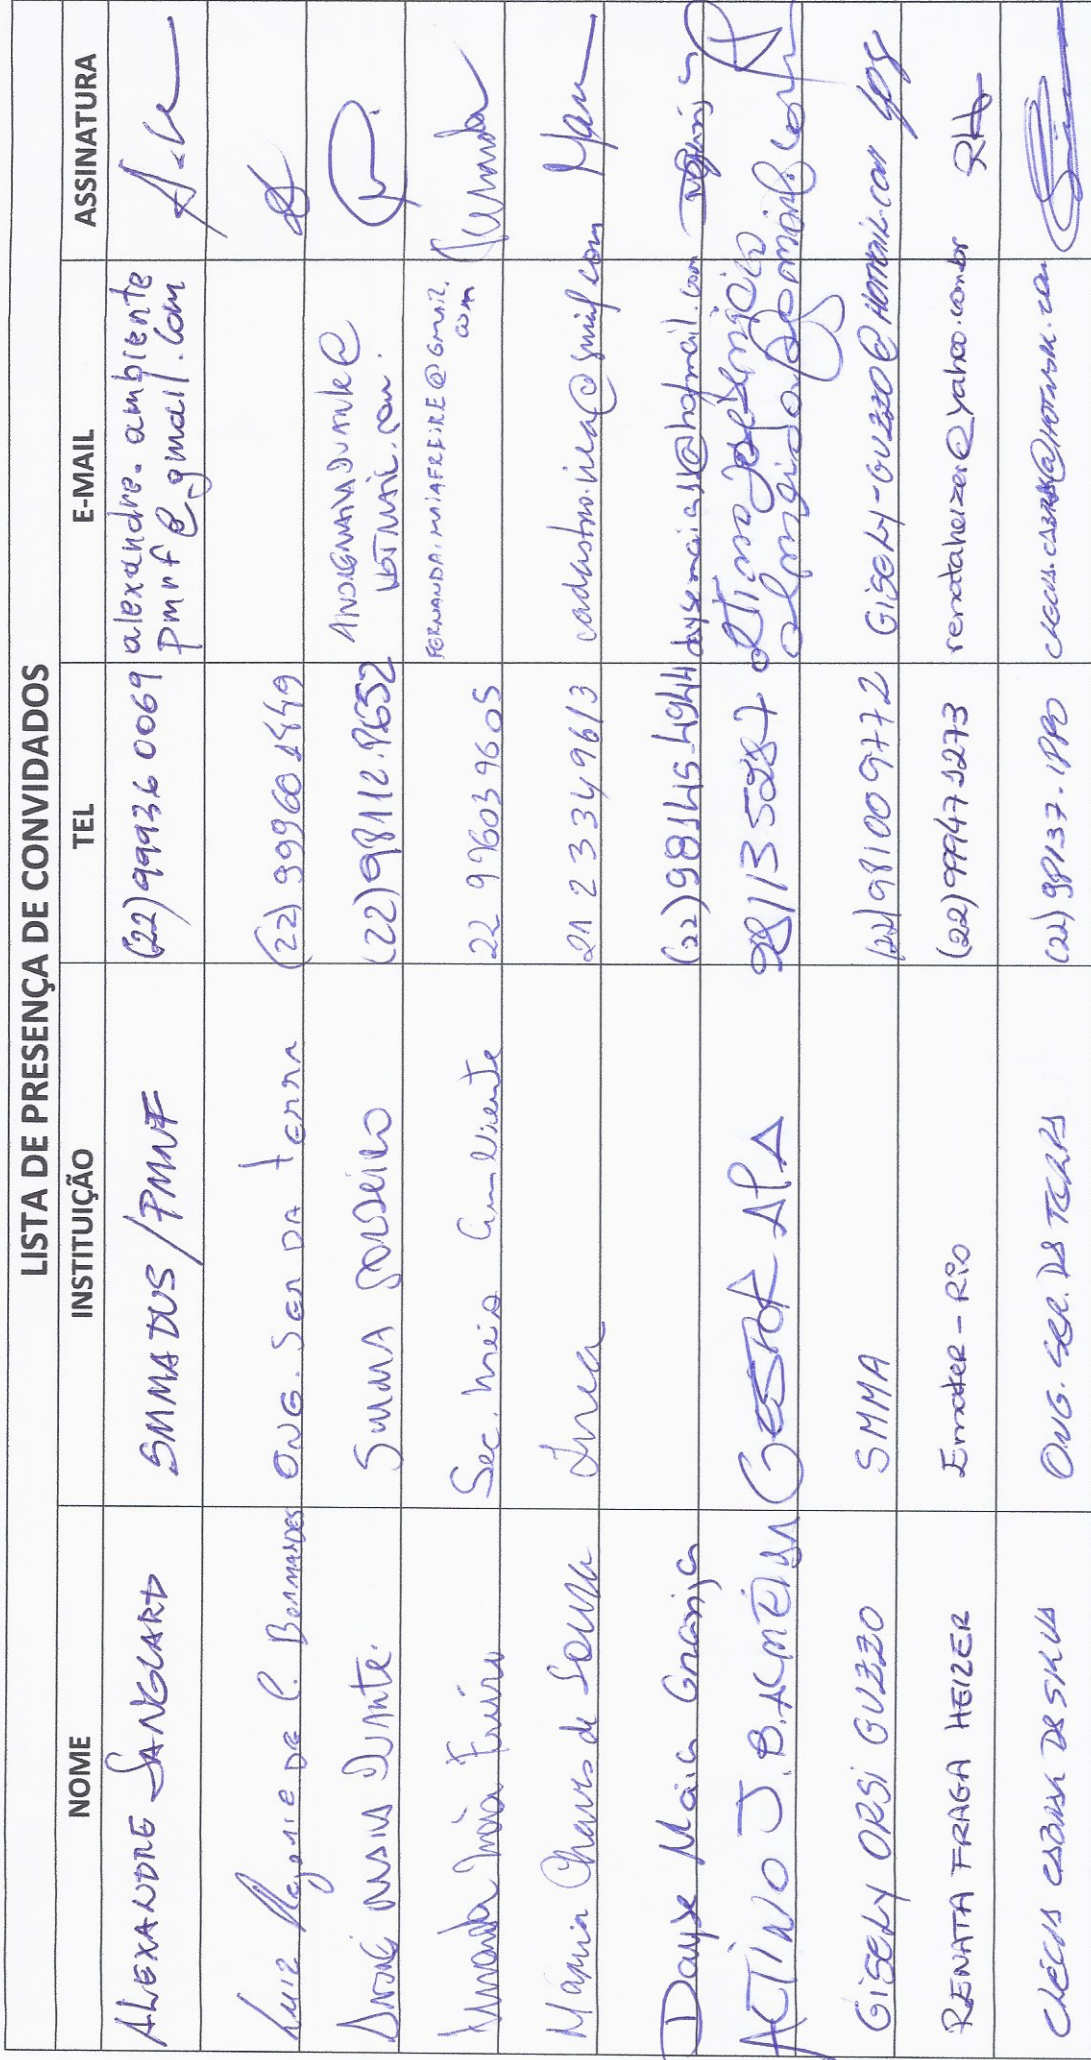 LISTA DE PRESENÇA DE CONVIDADOS
NOME INSTITUIÇÃO TEL E-MAIL ASSINATURA
ALEXANDRE SANGLARD SMMADUS/PMNF (22)99936 0069 alexandre.ambiente
pmnf@gmail.com
Luiz DE C. BERNARDES ONG. SER DA TERRA (22) 99960 1449
André MAIA Duarte SMMA (22)98112.8652 @
HOTMAIL.com
Fernanda Maia Freire Sec. Meio Ambiente 22 99603 9605 FERNANDA.MAIAFREIRE@GMAIL.
com Fernanda
Maria Chaves de Souza Inea 21 2334 9613 cadastro.inea@gmail.com
Dayse Maia Granja (22)98145-4944 @hotmail.com
ALTINO J. B. ALMEIDA GESTOR APA 981135287
GISELY ORSI GUZZO SMMA (22) 981009772 GISELY-GUZZO@HOTMAIL.COM
RENATA FRAGA HEIZER Emater-Rio (22)999475273 renataheizer@yahoo.com.br RH
DA SILVA ONG. SER. DA TERRA